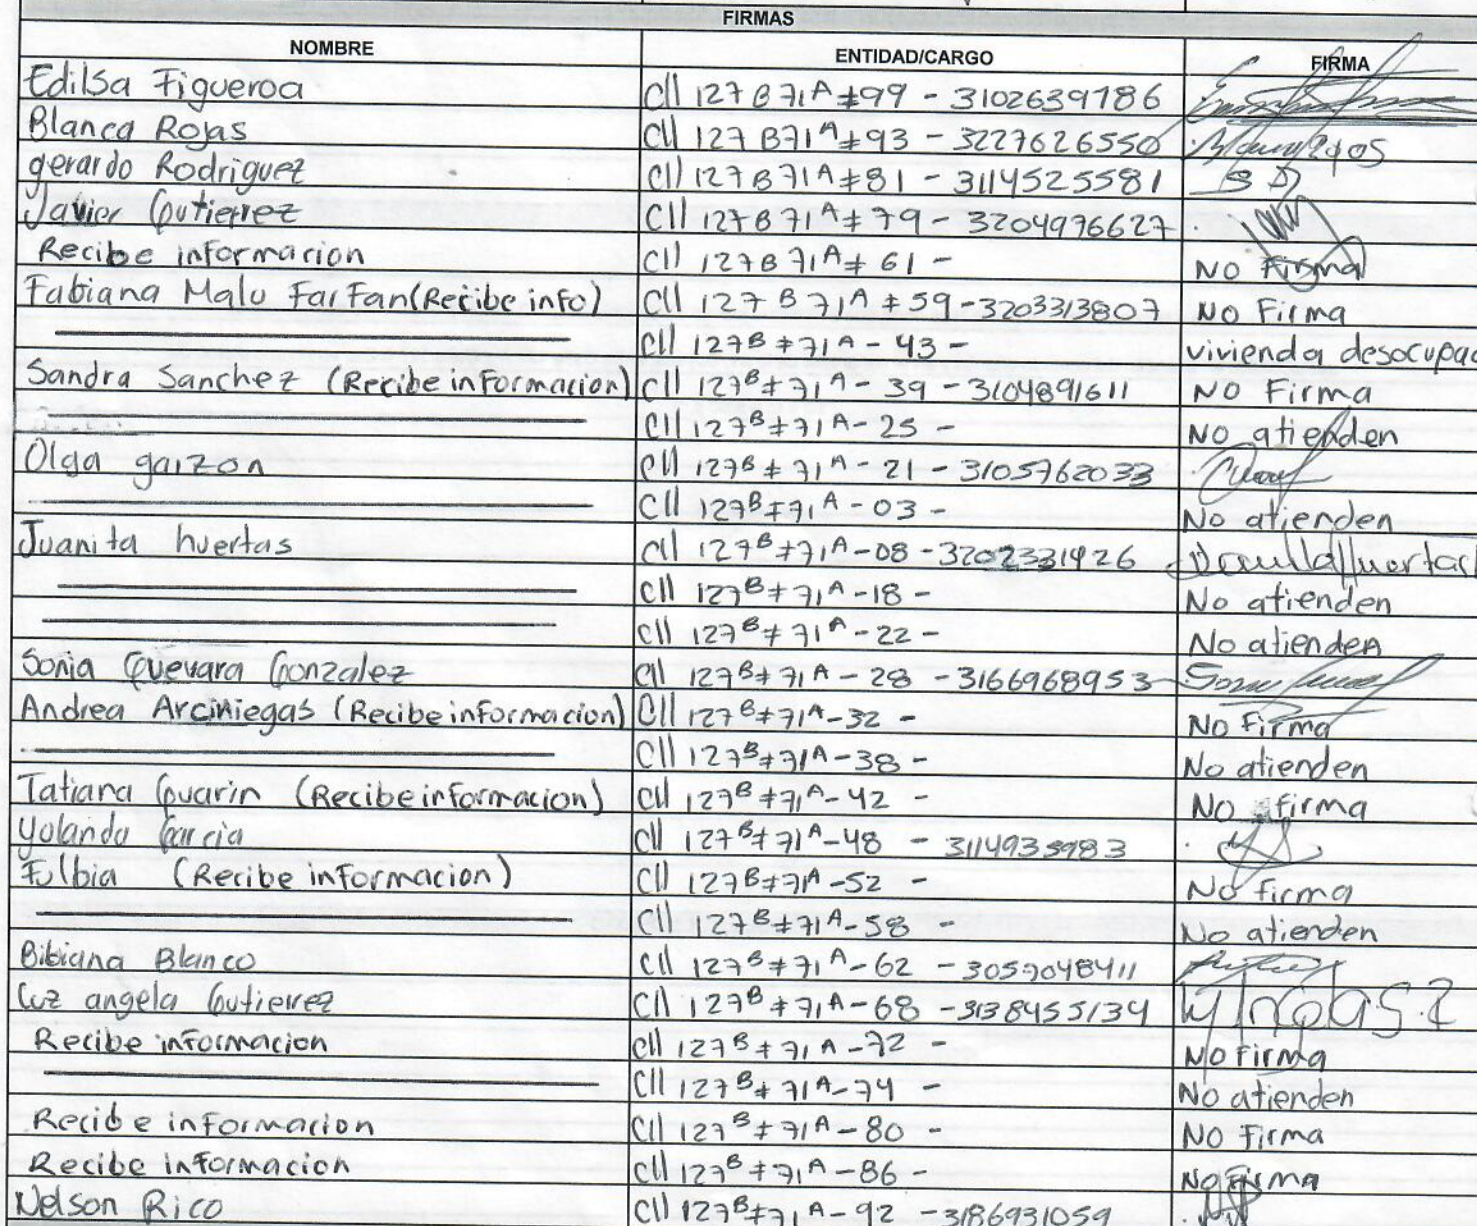 FIRMAS
NOMBRE ENTIDAD/CARGO FIRMA
Edilsa Figueroa Cll 127 B 71A #99 - 3102639786
Blanca Rojas Cll 127 B71A #93 - 3227626550
gerardo Rodriguez Cll 127 B 71A #81 - 3114525581
Javier Gutierrez Cll 127 B 71A #79 - 3204976627
Recibe informacion Cll 127B 71A # 61 - No Firma
Fabiana Malu FarFan (Recibe info) Cll 127 B 71A #59 - 3203313807 No Firma
Cll 127B #71A - 43 - vivienda desocupad
Sandra Sanchez (Recibe informacion) Cll 127B # 71A - 39 - 3104891611 No Firma
Cll 127B #71A - 25 - No atienden
Olga garzon Cll 127B # 71A - 21 - 3105762033
Cll 127B #71A - 03 - No atienden
Juanita huertas Cll 127B #71A - 08 - 3202331426
Cll 127B #71A - 18 - No atienden
Cll 127B # 71A - 22 - No atienden
Sonia Guevara Gonzalez Cll 127B # 71A - 28 - 3166968953
Andrea Arciniegas (Recibe informacion) Cll 127B #71A - 32 - No Firma
Cll 127B #71A - 38 - No atienden
Tatiana Guarin (Recibe informacion) Cll 127B #71A - 42 - No firma
Yolanda Garcia Cll 127B #71A - 48 - 3114935983
Fulbia (Recibe informacion) Cll 127B #71A - 52 - No firma
Cll 127B #71A - 58 - No atienden
Bibiana Blanco Cll 127B #71A - 62 - 3057048411
Luz angela Gutierrez Cll 127B #71A - 68 - 3138455134
Recibe informacion Cll 127B # 71A - 72 - No Firma
Cll 127B # 71A - 74 - No atienden
Recibe informacion Cll 127B #71A - 80 - No Firma
Recibe informacion Cll 127B #71A - 86 - No Firma
Nelson Rico Cll 127B #71A - 92 - 3186931059